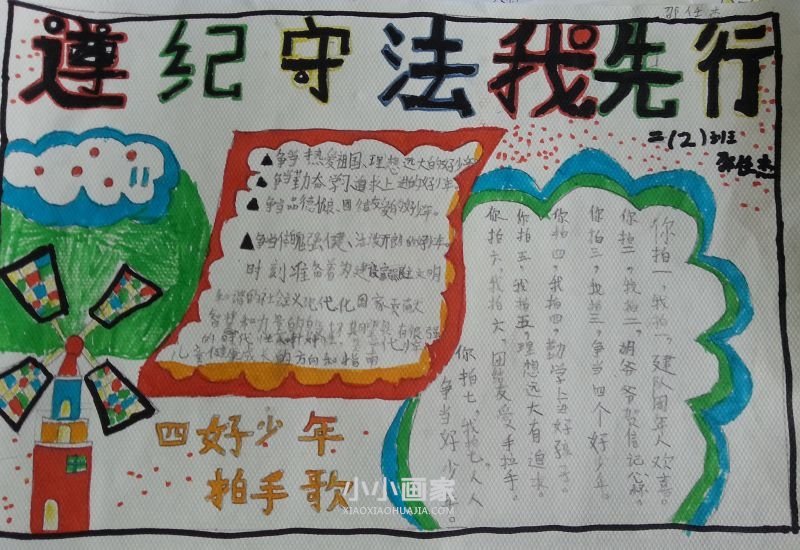 邵任杰
遵纪守法我先行
二(2)班
邵任杰
▲争当热爱祖国、理想远大的好少年
▲争当勤奋学习、追求上进的好少年
▲争当品德优良、团结友爱的好少年。
▲争当体魄强健、活泼开朗的好少年。
时刻准备着为建设富强民主文明
和谐的社会主义现代化国家贡献
智慧和力量
儿童健康成长的方向和指南
你拍一,我拍一,建队周年人欢喜。
你拍二,我拍二,胡爷爷贺信记心怀。
你拍三,我拍三,争当四个好少年。
你拍四,我拍四,勤学上进好孩子。
你拍五,我拍五,理想远大有追求。
你拍六,我拍六,团结友爱手拉手。
你拍七,我拍七,人人
争当好少年。
四好少年
拍手歌
小小画家
XIAOXIAOHUAJIA.COM